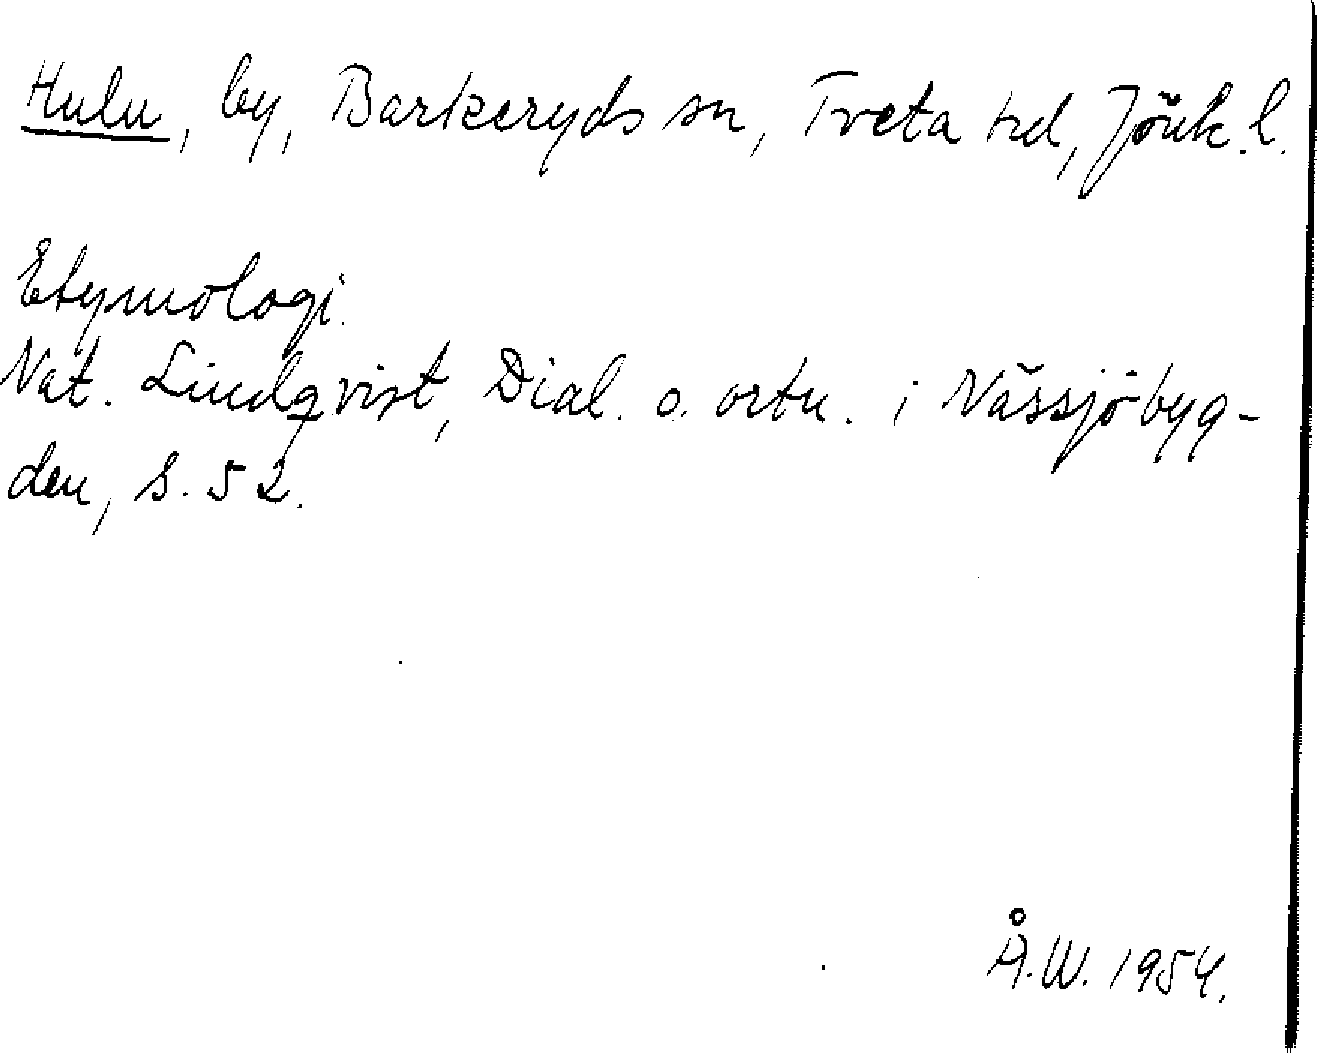 Hulu, by, Barkeryds sn, Tveta hd, Jönk. l.
Etymologi.
Nat. Lindqvist, Dial. o. ortn. i Nässjöbyg-
den, s. 52.
Å.W. 1954.